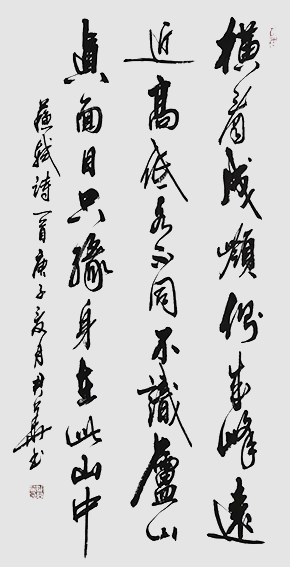 橫看成嶺側成峰遠
近高低各不同不識廬山
眞面目只緣身在此山中
蘇軾詩一首庚子夏月華書